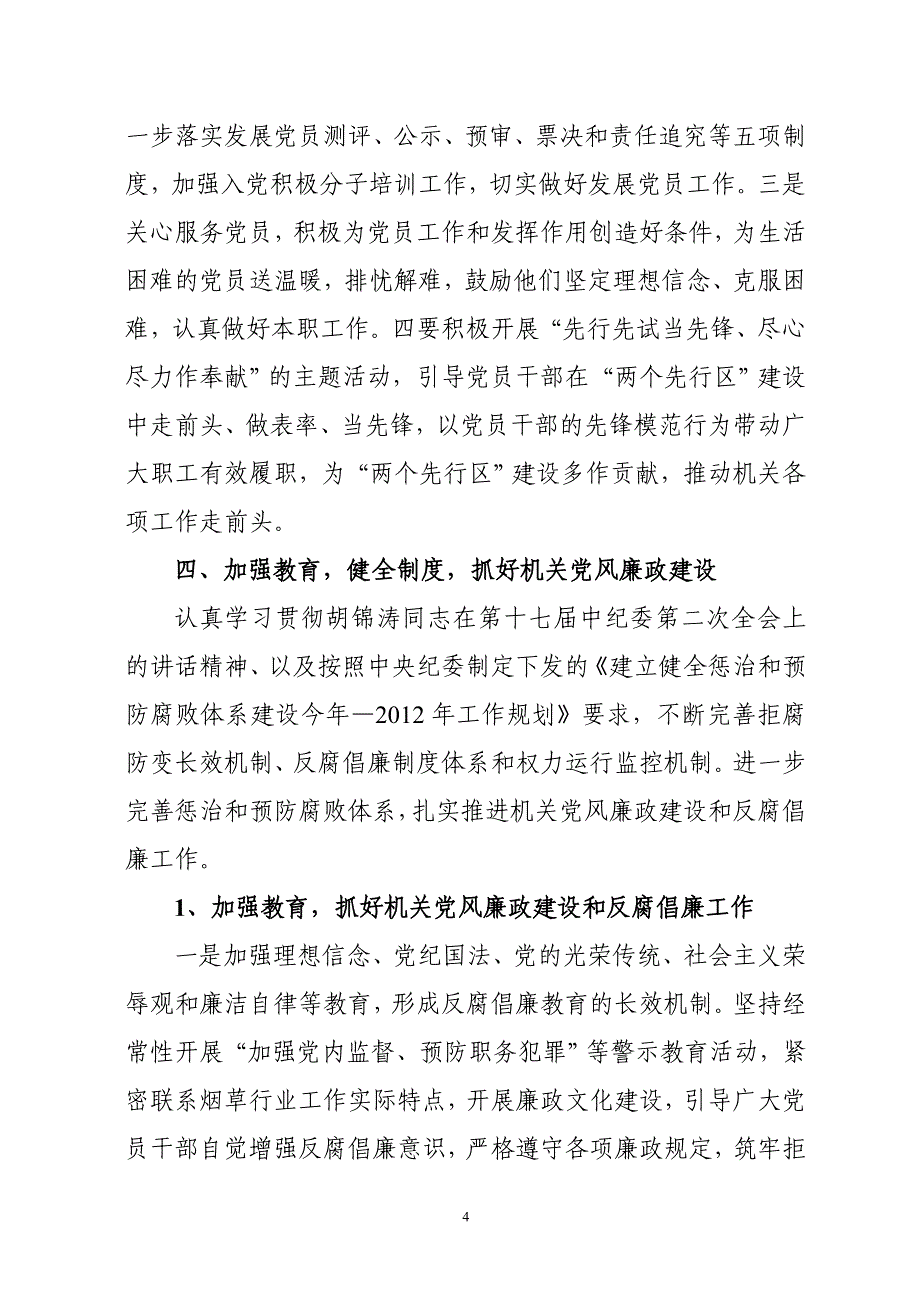 一步落实发展党员测评、公示、预审、票决和责任追究等五项制
度，加强入党积极分子培训工作，切实做好发展党员工作。三是
关心服务党员，积极为党员工作和发挥作用创造好条件，为生活
困难的党员送温暖，排忧解难，鼓励他们坚定理想信念、克服困
难，认真做好本职工作。四要积极开展“先行先试当先锋、尽心
尽力作奉献”的主题活动，引导党员干部在“两个先行区”建设
中走前头、做表率、当先锋，以党员干部的先锋模范行为带动广
大职工有效履职，为“两个先行区”建设多作贡献，推动机关各
项工作走前头。
四、加强教育，健全制度，抓好机关党风廉政建设
认真学习贯彻胡锦涛同志在第十七届中纪委第二次全会上
的讲话精神、以及按照中央纪委制定下发的《建立健全惩治和预
防腐败体系建设今年—2012 年工作规划》要求，不断完善拒腐
防变长效机制、反腐倡廉制度体系和权力运行监控机制。进一步
完善惩治和预防腐败体系，扎实推进机关党风廉政建设和反腐倡
廉工作。
1、加强教育，抓好机关党风廉政建设和反腐倡廉工作
一是加强理想信念、党纪国法、党的光荣传统、社会主义荣
辱观和廉洁自律等教育，形成反腐倡廉教育的长效机制。坚持经
常性开展“加强党内监督、预防职务犯罪”等警示教育活动，紧
密联系烟草行业工作实际特点，开展廉政文化建设，引导广大党
员干部自觉增强反腐倡廉意识，严格遵守各项廉政规定，筑牢拒
4